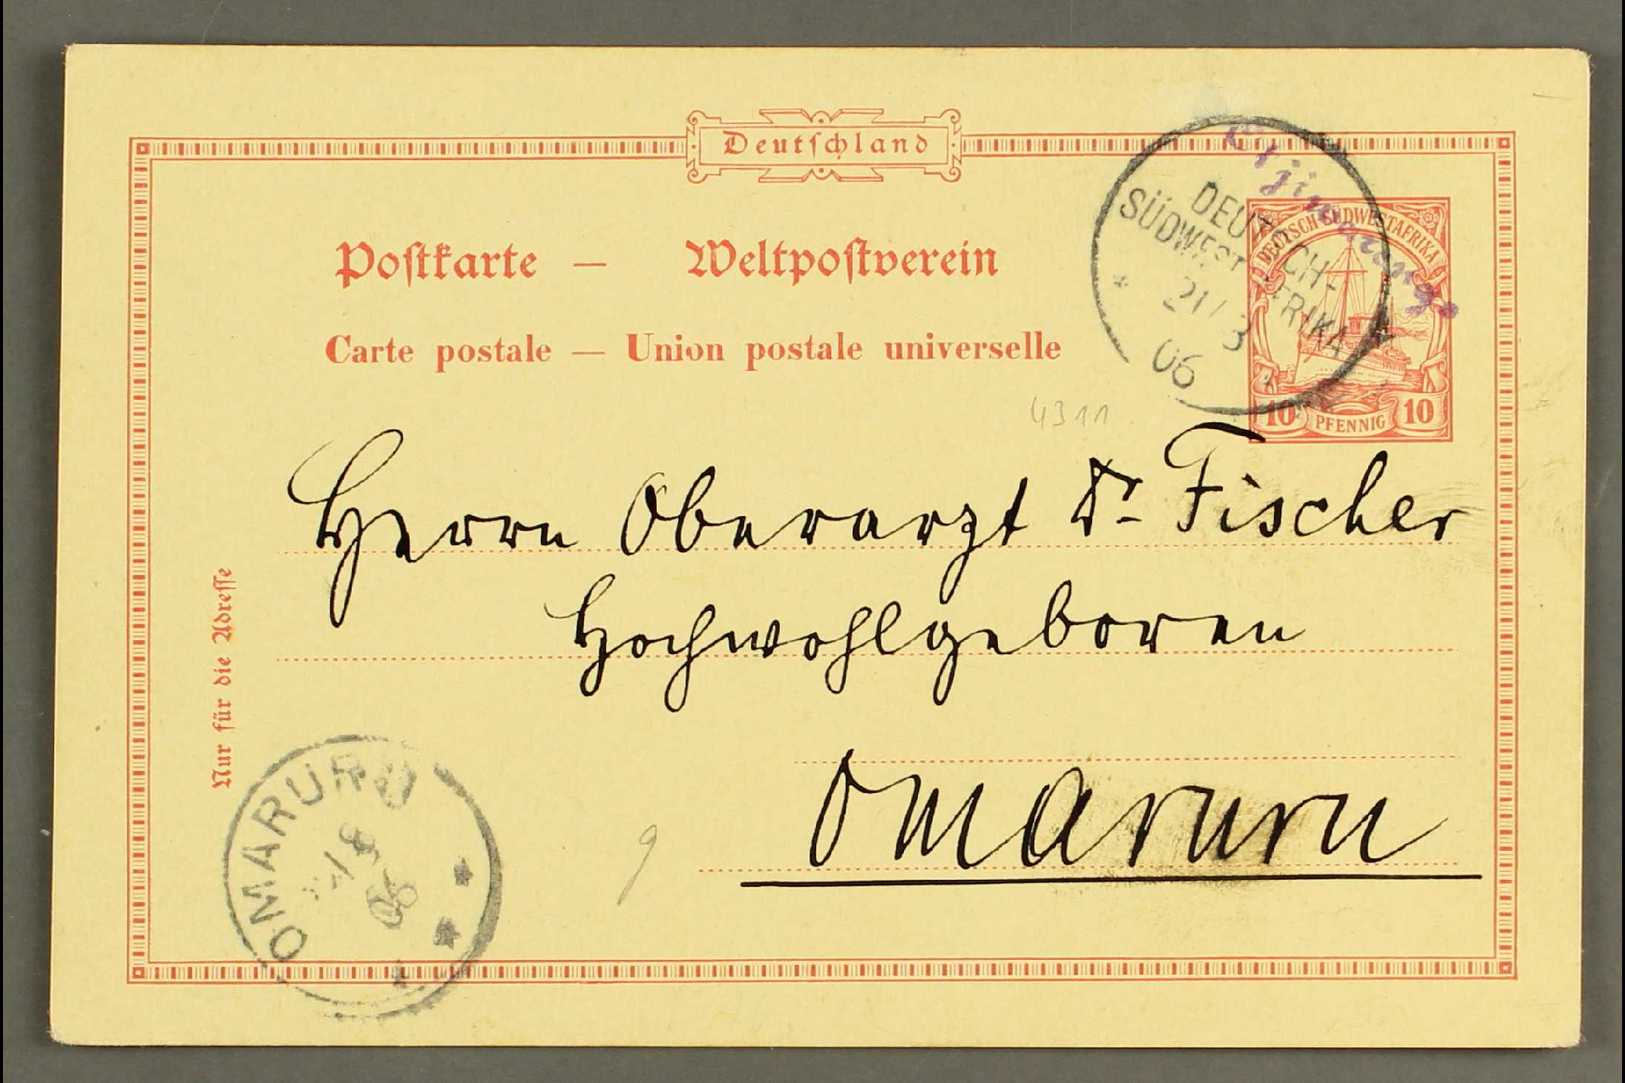 Deutschland
Postkarte — Weltpostverein
Carte postale — Union postale universelle
DEUTSCH-
SÜDWESTAFRIKA
21/3
06
DEUTSCH-SÜDWESTAFRIKA
10 PFENNIG 10
4311
Herrn Oberarzt Dr Fischer
Hochwohlgeboren
Omaruru
Nur für die Adresse
OMARURU
06
9